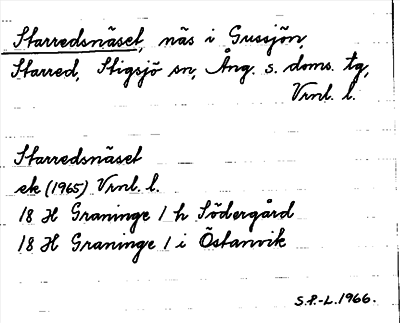 Starredsnäset, näs i Gussjön,
Starred, Stigsjö sn, Ång. s. doms. tg,
Vrnl. l.
Starredsnäset
ek (1965) Vrnl. l.
18 H Graninge 1 h Södergård
18 H Graninge 1 i Östanvik
S.P.-L. 1966.